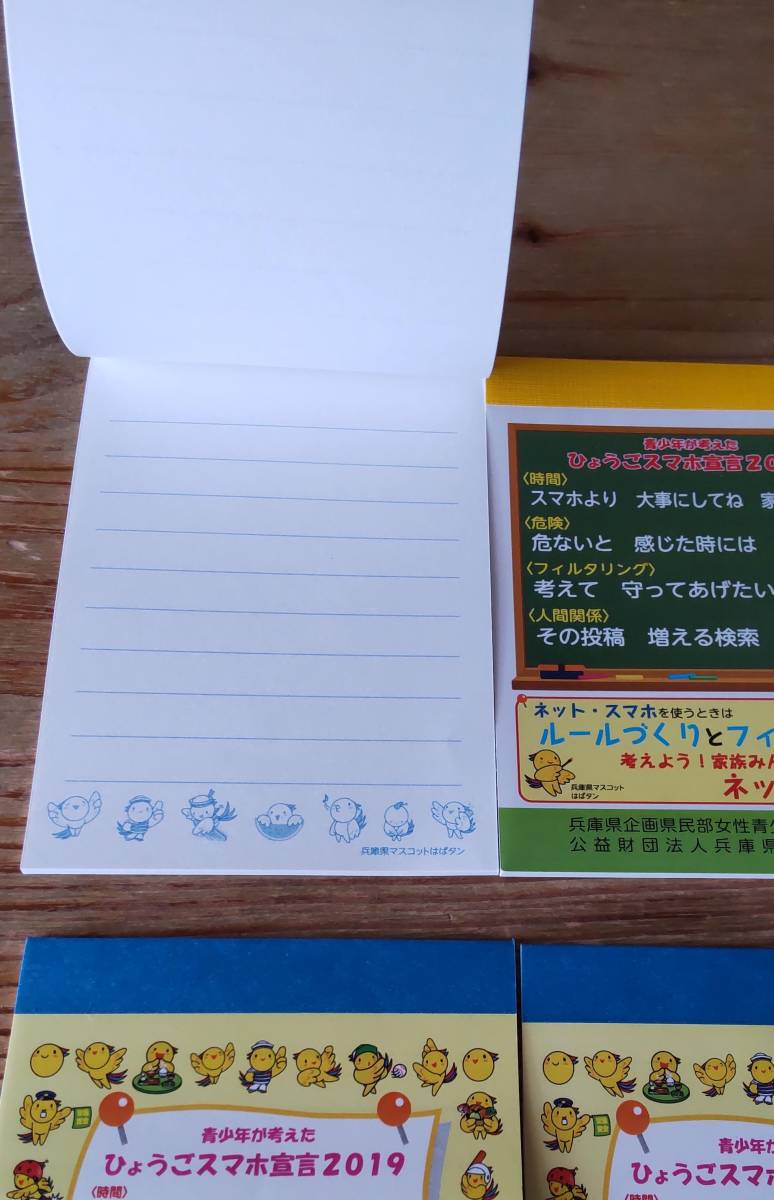 兵庫県マスコットはばタン
青少年が考えた
ひょうごスマホ宣言20
〈時間〉
スマホより 大事にしてね 家
〈危険〉
危ないと 感じた時には
〈フィルタリング〉
考えて 守ってあげたい
〈人間関係〉
その投稿 増える検索
ネット・スマホを使うときは
ルールづくりとフィ
考えよう！家族みん
ネッ
兵庫県マスコット
はばタン
兵庫県企画県民部女性青少
公益財団法人兵庫県
青少年が考えた
ひょうごスマホ宣言2019
〈時間〉
青少年が
ひょうごスマホ
〈時間〉